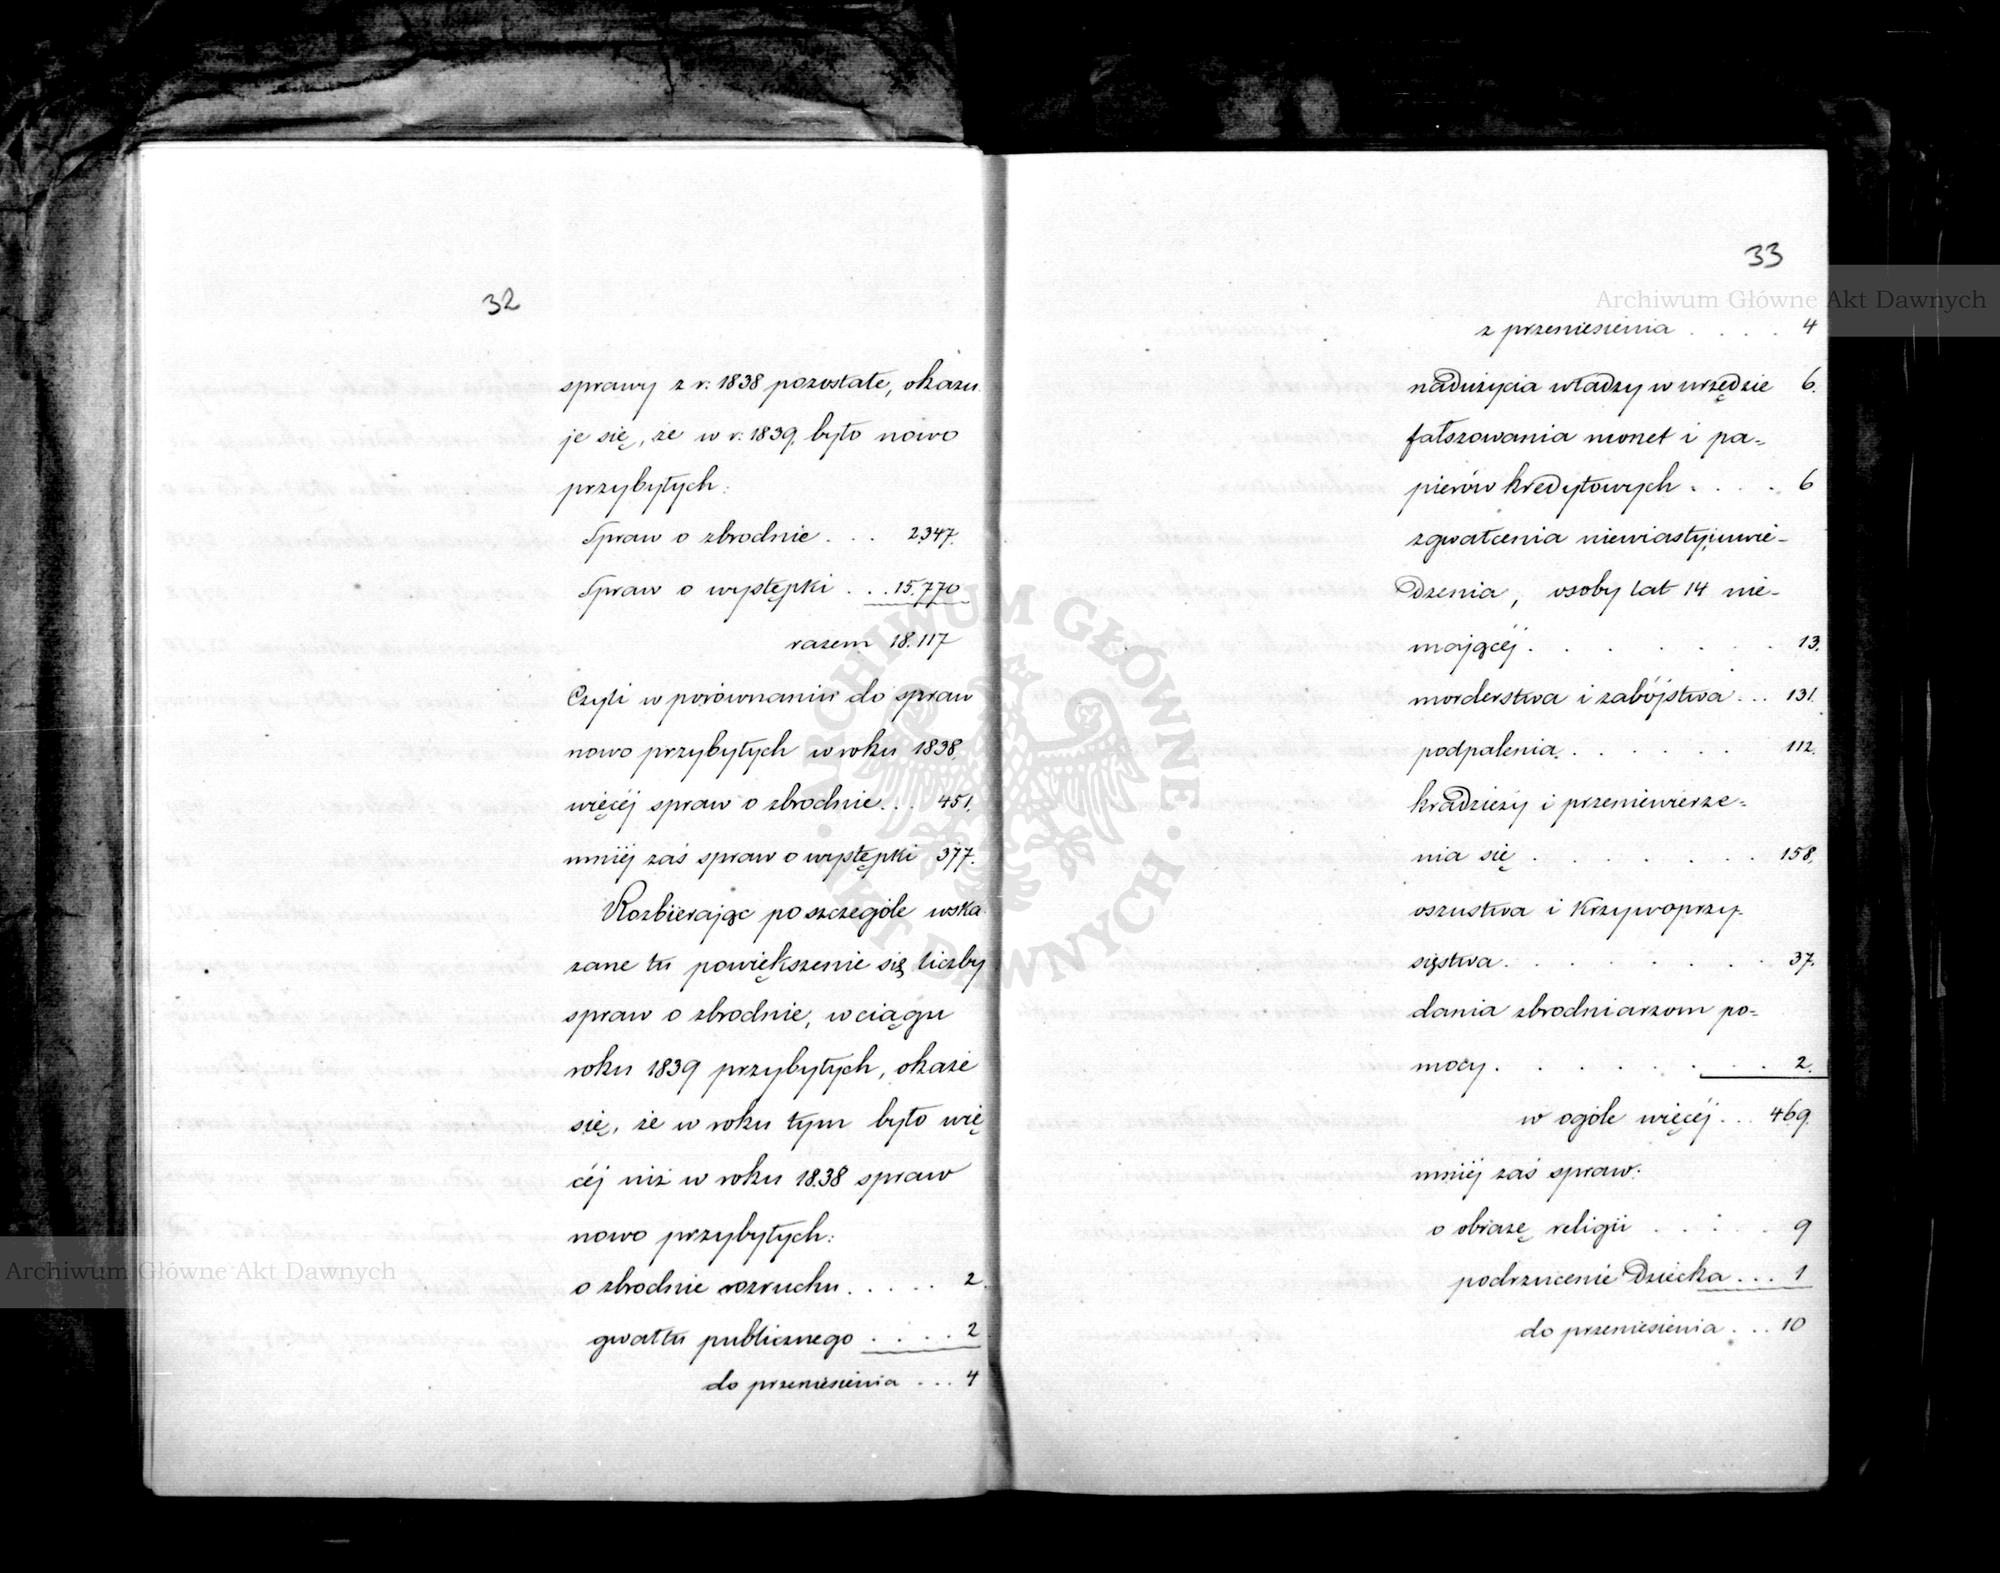 32
sprawy z r: 1838 pozostałe, okazu
je się, że w r: 1839. było nowo
przybyłych:
Spraw o zbrodnie . . . 2347.
Spraw o występki . . . 15.770
razem 18.117
Czyli w porównaniu do spraw
nowo przybyłych w roku 1838.
więcéj spraw o zbrodnie . . . 451.
mniéj zaś spraw o występki 377.
Rozbierając poszczególe wska
zane tu powiększenie się liczby
spraw o zbrodnie, w ciągu
roku 1839 przybyłych, okaże
się, że w roku tym było wię
céj niż w roku 1838 spraw
nowo przybyłych:
o zbrodnie rozruchu . . . . . 2.
gwałtu publicznego . . . . 2.
do przeniesienia . . . 4
33
z przeniesienia . . . . 4
nadużycia władzy w urzędzie 6.
fałszowania monet i pa=
pierów kredytowych . . . . 6
zgwałcenia niewiasty, uwie-
dzenia, osoby lat 14 nie-
mającéj . . . . . . . 13.
morderstwa i zabójstwa . . . 131.
podpalenia . . . . . . 112.
kradzieży i przeniewierze=
nia się . . . . . . . 158.
oszustwa i krzywoprzy-
sięstwa . . . . . . . 37.
dania zbrodniarzom po=
mocy . . . . . . . 2.
w ogóle więcéj . . . 469.
mniéj zaś spraw:
o obrazę religii . . . . . 9
podrzucenie dziecka . . . 1
do przeniesienia . . . 10
Archiwum Główne Akt Dawnych
Archiwum Główne Akt Dawnych
ARCHIWUM GŁÓWNE
AKT DAWNYCH